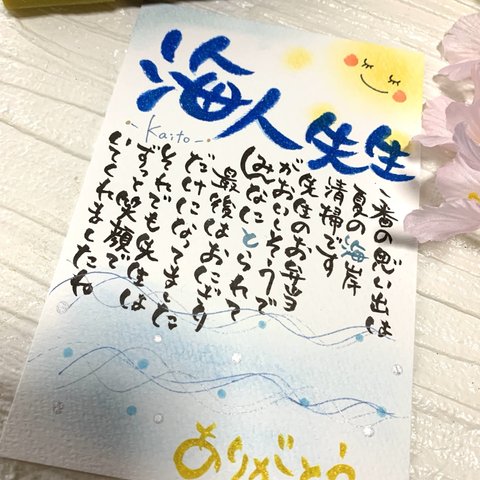 海人先生
-Kaito-
一番の思い出は
夏の海岸
清掃です
先生のお弁当
がおいしそうで
みんなにとられて
最後はおにぎり
だけになってました
それでも先生は
ずっと笑顔で
いてくれましたね
ありがとう